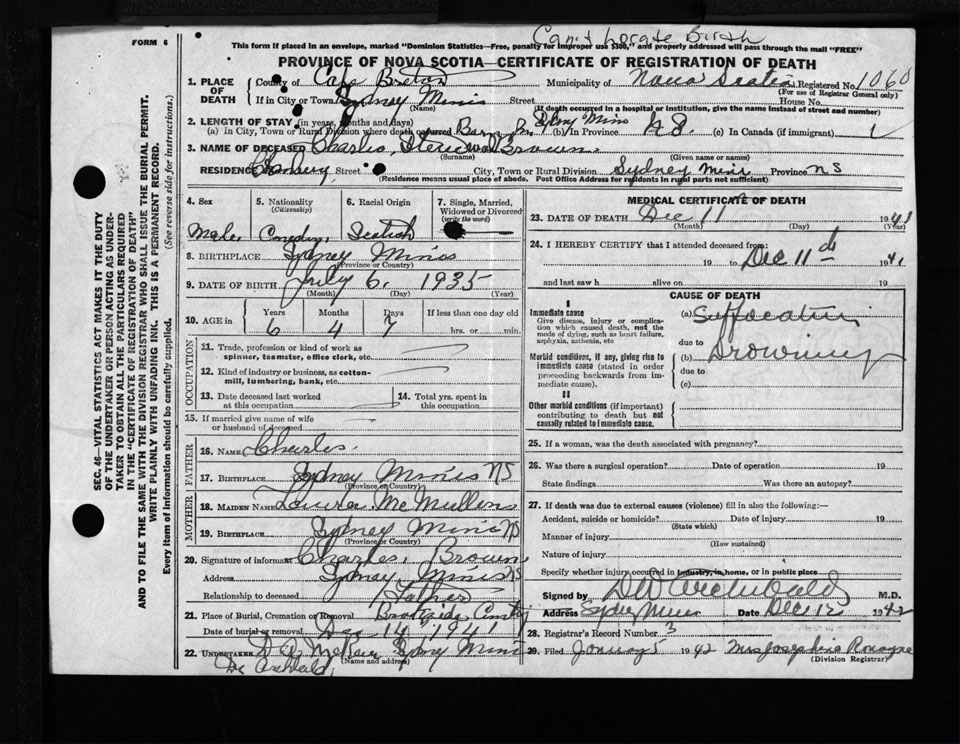 Can't Locate Birth
FORM 6
This form if placed in an envelope, marked "Dominion Statistics—Free, penalty for improper use $300," and properly addressed will pass through the mail "FREE"
PROVINCE OF NOVA SCOTIA—CERTIFICATE OF REGISTRATION OF DEATH
1. PLACE OF DEATH County of Cape Breton Municipality of Nova Scotia Registered No. 1060
(For use of Registrar General only)
If in City or Town Sydney Mines Street House No.
(Name) (If death occurred in a hospital or institution, give the name instead of street and number)
2. LENGTH OF STAY (in years, months and days)
(a) In City, Town or Rural Division where death occurred Born in Sydney Mines (b) In Province (c) In Canada (if immigrant)
3. NAME OF DECEASED Charles, Brown
(Surname) (Given name or names)
RESIDENCE Street City, Town or Rural Division Sydney Mines Province NS
(Residence means usual place of abode. Post Office Address for residents in rural parts not sufficient)
SEC. 46—VITAL STATISTICS ACT MAKES IT THE DUTY
OF THE UNDERTAKER OR PERSON ACTING AS UNDERTAKER TO OBTAIN ALL THE PARTICULARS REQUIRED
IN THE "CERTIFICATE OF REGISTRATION OF DEATH"
AND TO FILE THE SAME WITH THE DIVISION REGISTRAR WHO SHALL ISSUE THE BURIAL PERMIT.
WRITE PLAINLY WITH UNFADING INK. THIS IS A PERMANENT RECORD.
Every item of information should be carefully supplied. (See reverse side for instructions.)
4. Sex 5. Nationality (Citizenship) 6. Racial Origin 7. Single, Married, Widowed or Divorced (write the word)
Male Scotish
8. BIRTHPLACE Sydney Mines
(Province or Country)
9. DATE OF BIRTH July 6, 1935
(Month) (Day) (Year)
10. AGE in Years Months Days If less than one day old
6 4 7 hrs. or min.
OCCUPATION
11. Trade, profession or kind of work as spinner, teamster, office clerk, etc.
12. Kind of industry or business, as cotton-mill, lumbering, bank, etc.
13. Date deceased last worked at this occupation 14. Total yrs. spent in this occupation
15. If married give name of wife or husband of deceased
FATHER
16. Name Charles
17. Birthplace Sydney Mines NS
(Province or Country)
MOTHER
18. Maiden Name Laura McMullens
19. Birthplace Sydney Mines NS
(Province or Country)
20. Signature of informant Charles. Brown
Address Sydney Mines NS
Relationship to deceased Father
21. Place of Burial, Cremation or Removal Brookside
Date of burial or removal Dec 14, 1941
22. UNDERTAKER Sydney Mines
(Name and address)
Dr Archibald
MEDICAL CERTIFICATE OF DEATH
23. DATE OF DEATH Dec 11 1941
(Month) (Day) (Year)
24. I HEREBY CERTIFY that I attended deceased from:
19 to Dec 11th 1941
and last saw h alive on 19
CAUSE OF DEATH
I
Immediate cause
Give disease, injury or complication which caused death, not the mode of dying, such as heart failure, asphyxia, asthenia, etc
(a) Suffocation
due to
Morbid conditions, if any, giving rise to immediate cause (stated in order proceeding backwards from immediate cause).
(b) Drowning
due to
(c)
II
Other morbid conditions (if important) contributing to death but not causally related to immediate cause.
25. If a woman, was the death associated with pregnancy?
26. Was there a surgical operation? Date of operation 19
State findings Was there an autopsy?
27. If death was due to external causes (violence) fill in also the following:—
Accident, suicide or homicide? Date of injury 19
(State which)
Manner of injury
(How sustained)
Nature of injury
Specify whether injury occurred in industry, in home, or in public place
Signed by DW Archibald M.D.
Address Sydney Mines Date Dec 12 1942
28. Registrar's Record Number 3
29. Filed January 5 1942 Mrs Josephine Ronayne
(Division Registrar)